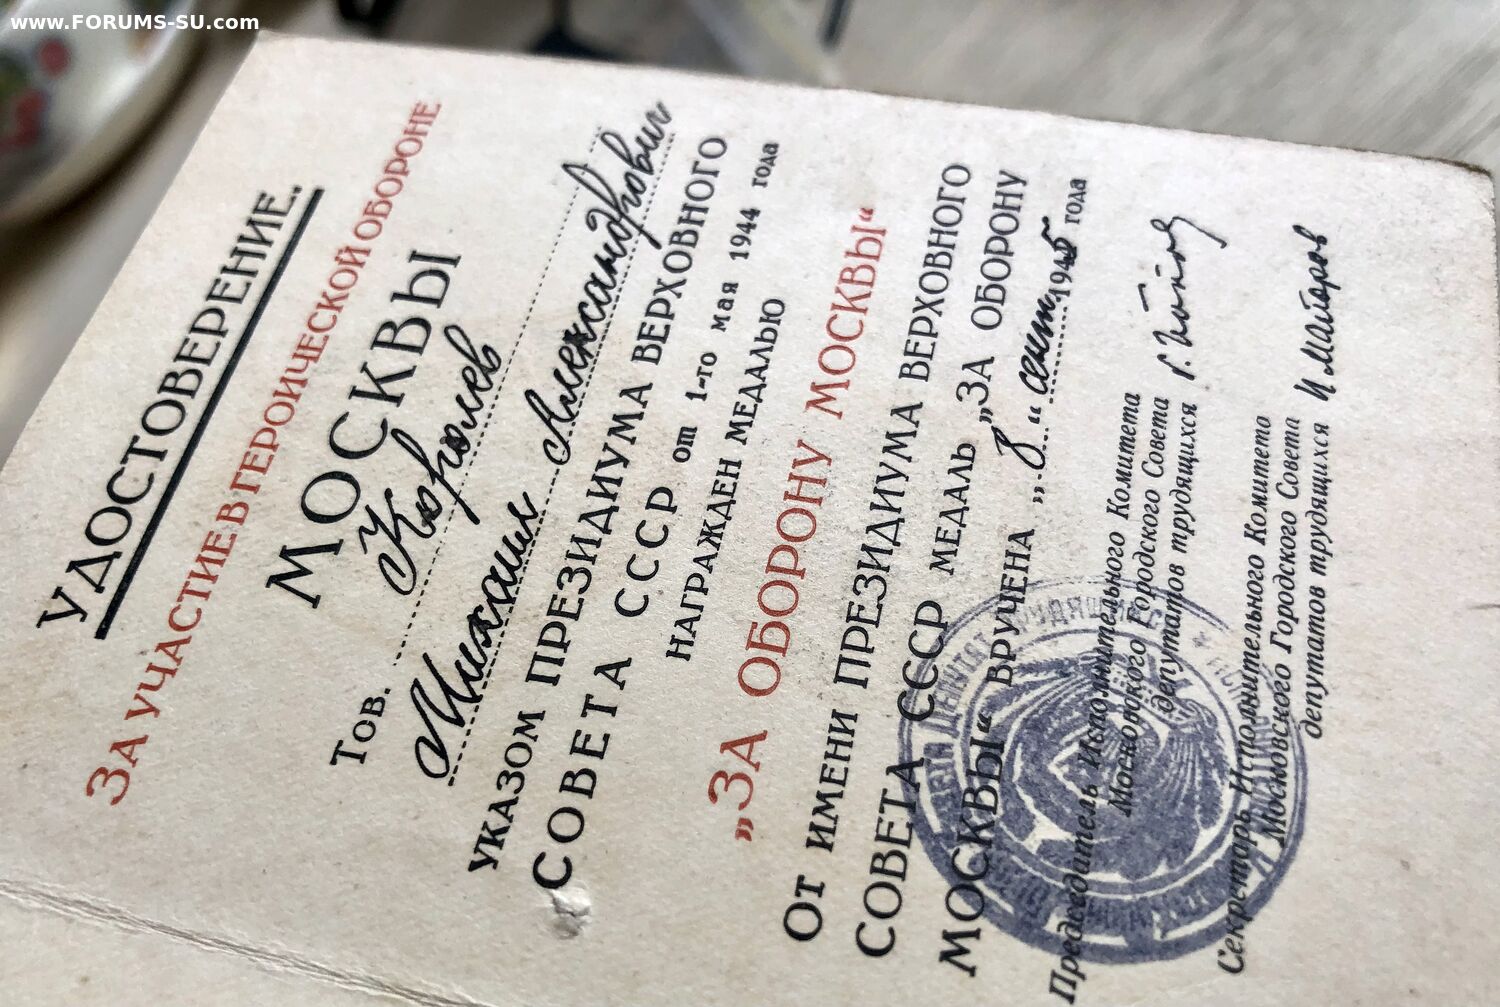 www.FORUMS-SU.com
УДОСТОВЕРЕНИЕ.
ЗА УЧАСТИЕ В ГЕРОИЧЕСКОЙ ОБОРОНЕ
МОСКВЫ
Тов. Королев
Михаил Александрович
УКАЗОМ ПРЕЗИДИУМА ВЕРХОВНОГО
СОВЕТА СССР от 1-го мая 1944 года
НАГРАЖДЕН МЕДАЛЬЮ
„ЗА ОБОРОНУ МОСКВЫ“
От ИМЕНИ ПРЕЗИДИУМА ВЕРХОВНОГО
СОВЕТА СССР МЕДАЛЬ „ЗА ОБОРОНУ
МОСКВЫ“ ВРУЧЕНА „8“ сент 1945 года
Председатель Исполнительного Комитета
Московского Городского Совета
депутатов трудящихся
Секретарь Исполнительного Комитета
Московского Городского Совета
депутатов трудящихся